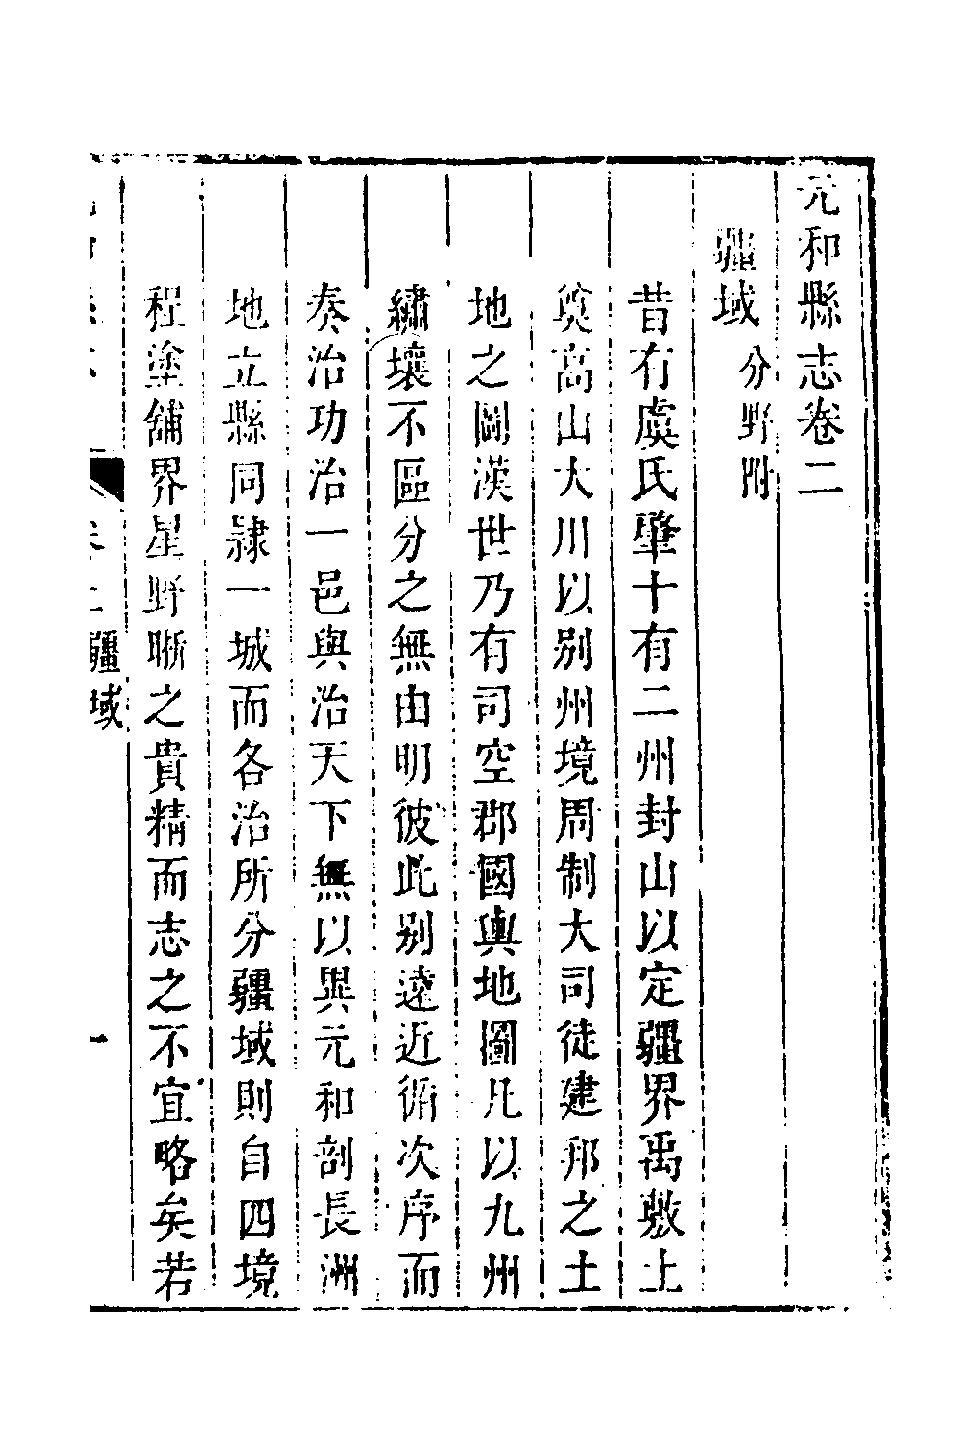 元和縣志卷二
疆域 分野附
昔有虞氏肇十有二州封山以定疆界禹敷土
奠高山大川以別州境周制大司徒建邦之土
地之圖漢世乃有司空郡國輿地圖凡以九州
繡壤不區分之無由明彼此别遠近循次序而
奏治功治一邑與治天下無以異元和剖長洲
地立縣同隸一城而各治所分疆域則自四境
程塗舖界星野晰之貴精而志之不宜略矣若
卷二 疆域 一